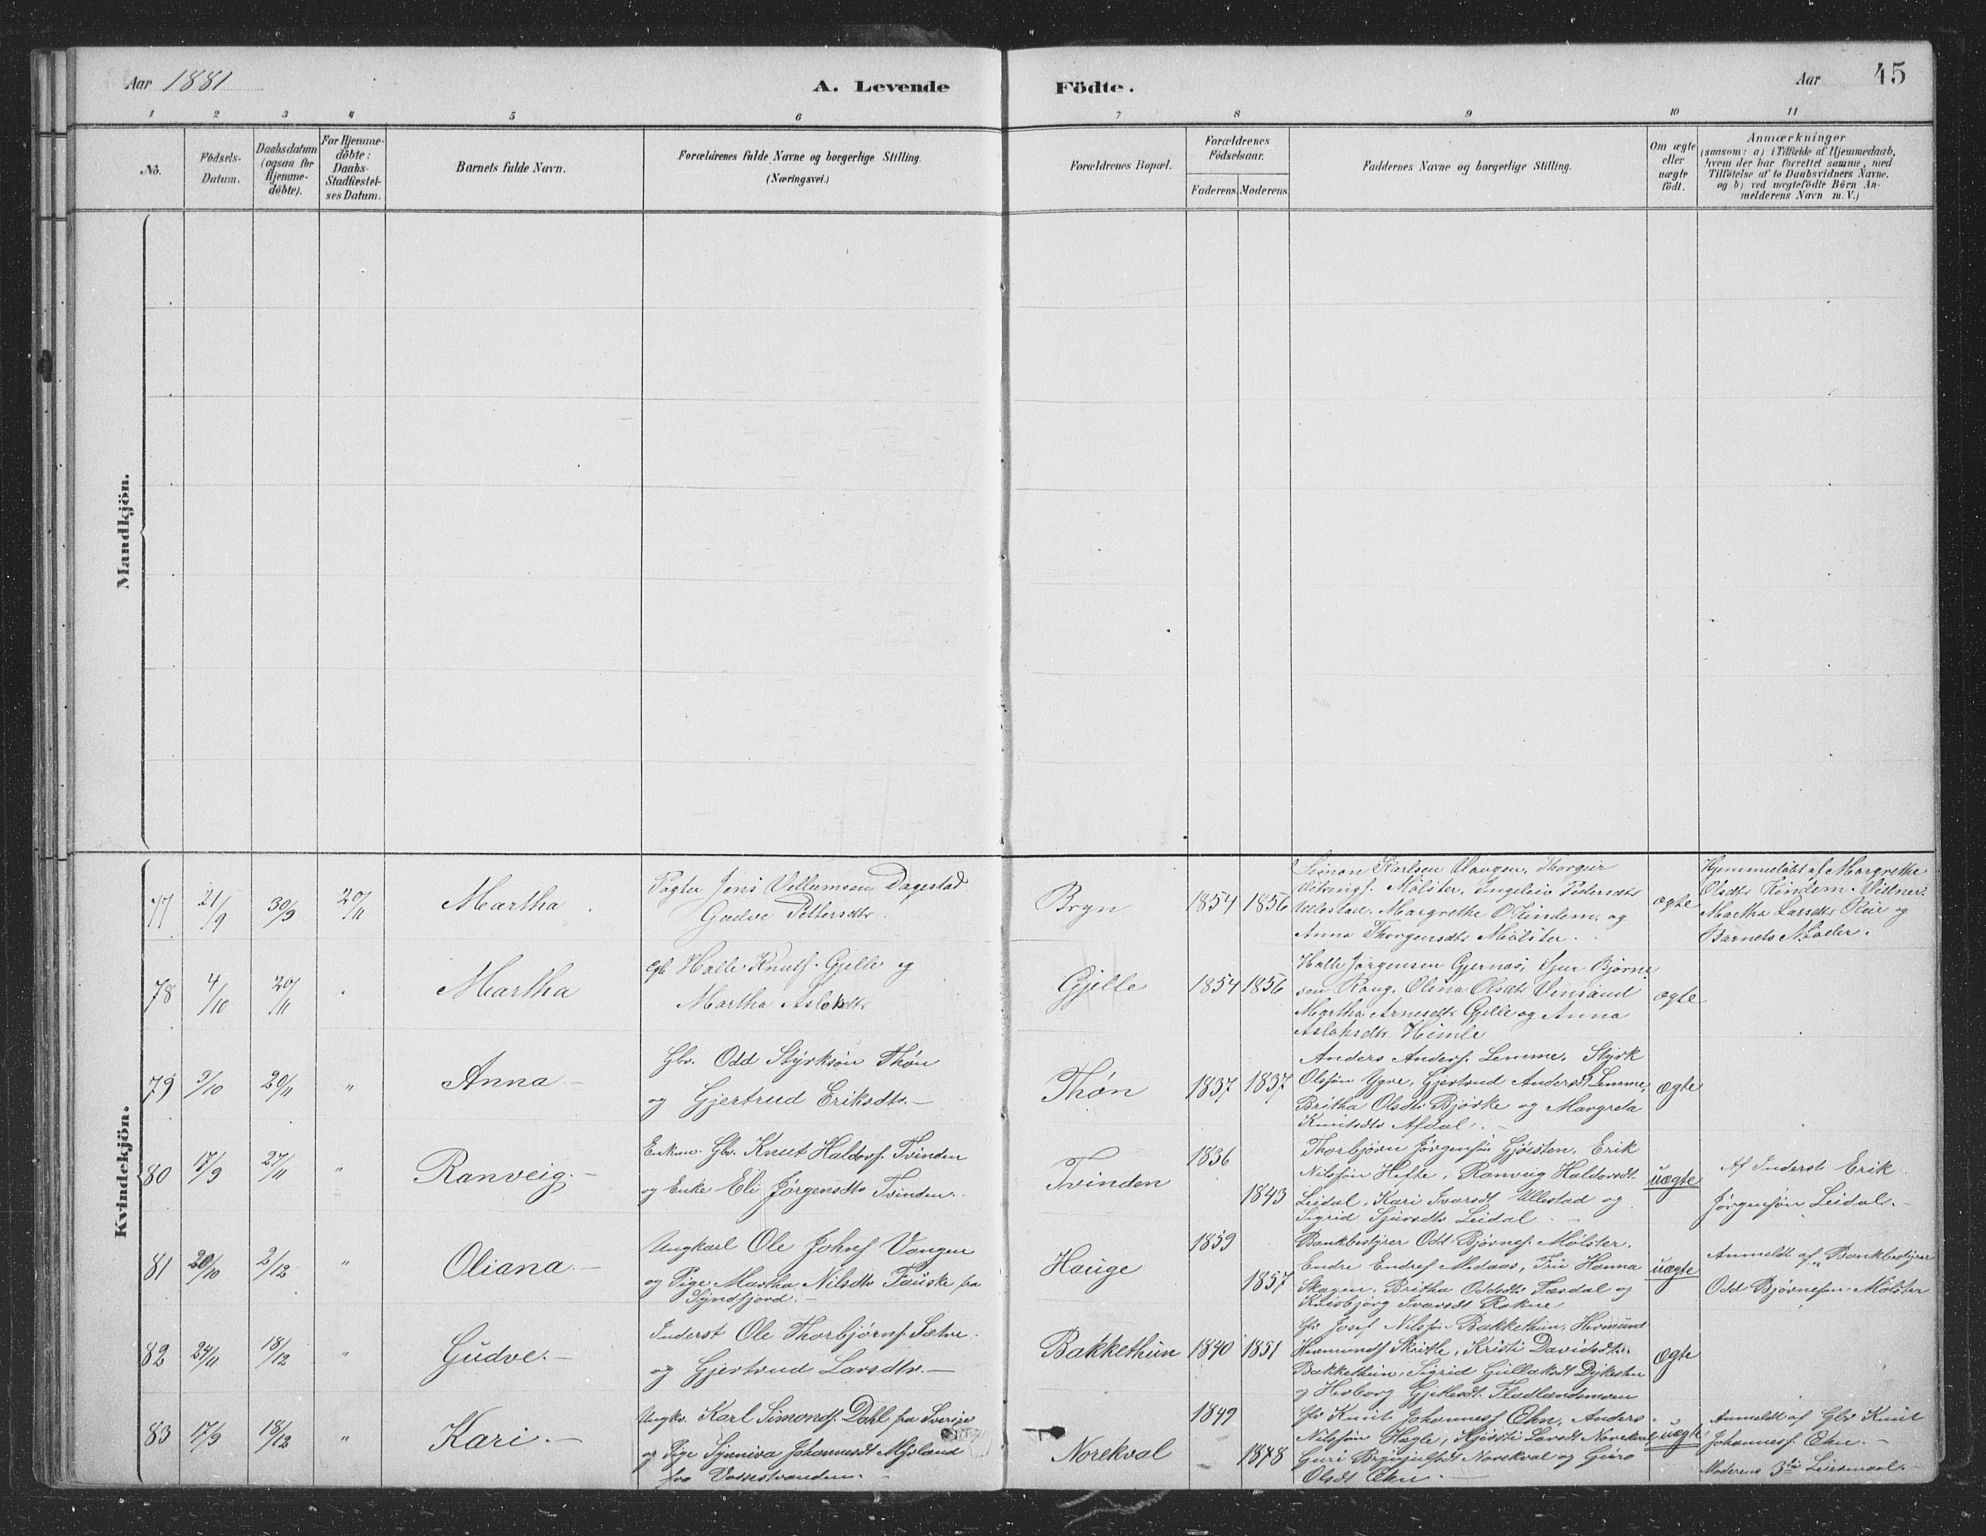 Aar 1881
A. Levende
Födte.
Aar
45
1 2 3 4 5 6 7 8 9 10 11
No.
Födsels-
Datum.
Daabsdatum
(ogsaa for
Hjemme-
döbte).
For Hjemme-
döbte:
Daabs-
Stadfæstel-
ses Datum.
Barnets fulde Navn.
Forældrenes fulde Navne og borgerlige Stilling.
(Næringsvei.)
Forældrenes Bopæl.
Forældrenes
Födselsaar.
Faderens. Moderens.
Faddernes Navne og borgerlige Stilling.
Om ægte
eller
uægte
födt.
Anmærkninger
(saasom: a) i Tilfælde af Hjemmedaab,
hvem der har forrettet samme, med
Tilföielse af to Daabsvidners Navne.
og b) ved uægtefödte Börn An-
melderens Navn m. V.)
Mandkjön.
Kvindekjön.
77
21/9
30/9
20/11
Martha
Jens Villumsen Dagestad
Gudve Pettersdtr.
Bryn
1854 1856
Simon Karlsen Vangen, Thorgeir
Vikingf. Mølster, Ingeleiv Petersdtr
Ullestad, Margrethe O. Rindem, og
Anna Thorgersdtr Mølster.
ægte
Hjemmedøbt af Margrethe
Olsdtr Rindem. Vidner:
Martha Larsdtr og
Barnets Moder.
78
4/10
20/11
Martha
Halle Knutf. Gjelle og
Martha Aslaksdtr
Gjelle
1854 1856
Halle Jørgensen Gjernæs, Sjur Bjørne
sen Olina Olsdtr Vinsand
Martha Arnesdtr Gjelle og Anna
Aslaksdtr Himle
ægte
79
9/10
20/11
"
Anna —
Gbr. Odd Styrksøn Thøn
og Gjertrud Eriksdtr. —
Thøn
1837 1837
Anders Andersf. Lemme, Styrk
Olsføn Ygre, Gjertrud Andersdt Lemme,
Britha Olsdtr Bjørke og Margreta
Knutsdtr Afdal.
ægte
80
17/9
27/11
"
Ranveig. —
Enkem. Gbr. Knut Haldorf. Tvinden
og Enke Eli Jørgensdtr Tvinden.
Tvinden
1836
1843
Thorbjørn Jørgensføn Gjøsten, Erik
Nilsføn Hefte, Ranveig Haldorsdt.
Leidal, Kari Ivarsdt Ullestad og
Sigrid Sjursdtr Leidal.
uægte
Af Inderst Erik
Jørgensføn Leidal. —
81
20/10
2/12
"
Oliana. —
Ungkarl Ole Johnf. Vangen
og Pige Martha Nilsdtr Tauske fra
Syndfjord. —
Hauge
1859
1857
Bankbestyrer Odd Bjørnef. Mølster.
Endre Endref Medaas, Fru Hanna
Skagen, Britha Oddsdtr Færdal og
Kristbjørg Ivarsdt Rokne,
uægte
Anmeldt af Bankbestyrer
Odd Bjørnesøn Mølster
82
24/11
18/12
"
Gudve. —
Inderst Ole Thorbjørnf. Sætve.
og Gjertrud Larsdtr. —
Bakkethun
1840 1851
Gbr Josef Nilsføn Bakkethun, Hermund
Hermundf Skutle, Kristi Davidsdtr.
Bakkethun, Sigrid Gullaksdt Dykesten
og Herborg Flatlandsmoen
ægte
83
17/9
18/12
"
Kari. —
Ungkr. Karl Simondf. Dahl fra Sverige
og Pige Synniva Johannesdt Mjeland
fra Vossestranden. —
Norekval
1849
1848
Gbr Knut Johannesf Ehn, Anders
Nilsføn Hagle, Larsdt Norekval
Guri Brynjulfsdt Norekval og Guro
Olsdt Ehn. —
uægte
Anmeldt af Gbr Knut
Johannesf. Ehn. —
Moderens 3die Leiermaal.